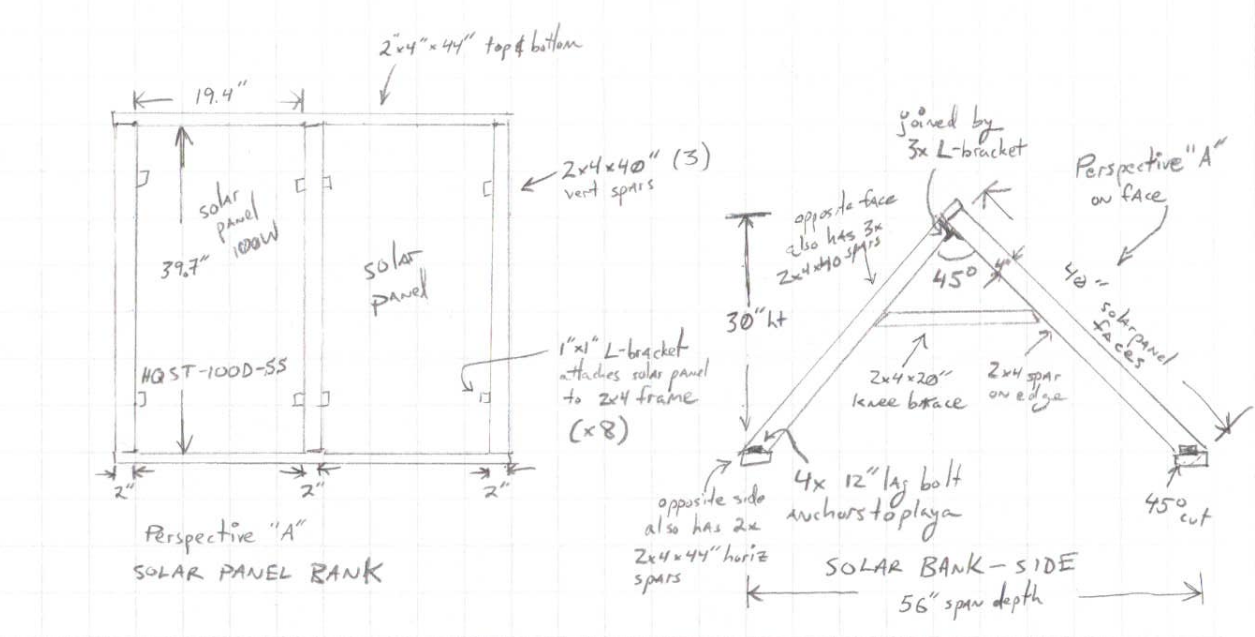 2"x4"x44" top & bottom
19.4"
2x4x40" (3)
vert spars
solar
panel
100W
39.7"
solar
panel
HQST-100D-SS
1"x1" L-bracket
attaches solar panel
to 2x4 frame
(x8)
2"
2"
2"
Perspective "A"
SOLAR PANEL BANK
joined by
3x L-bracket
Perspective "A"
on face
opposite face
also has 3x
2x4x40 spars
45°
4"
40"
solar panel
faces
30" ht
2x4x20"
knee brace
2x4 spar
on edge
opposite side
also has 2x
2x4x44" horiz
spars
4x 12" lag bolt
anchors to playa
45°
cut
SOLAR BANK - SIDE
56" span depth